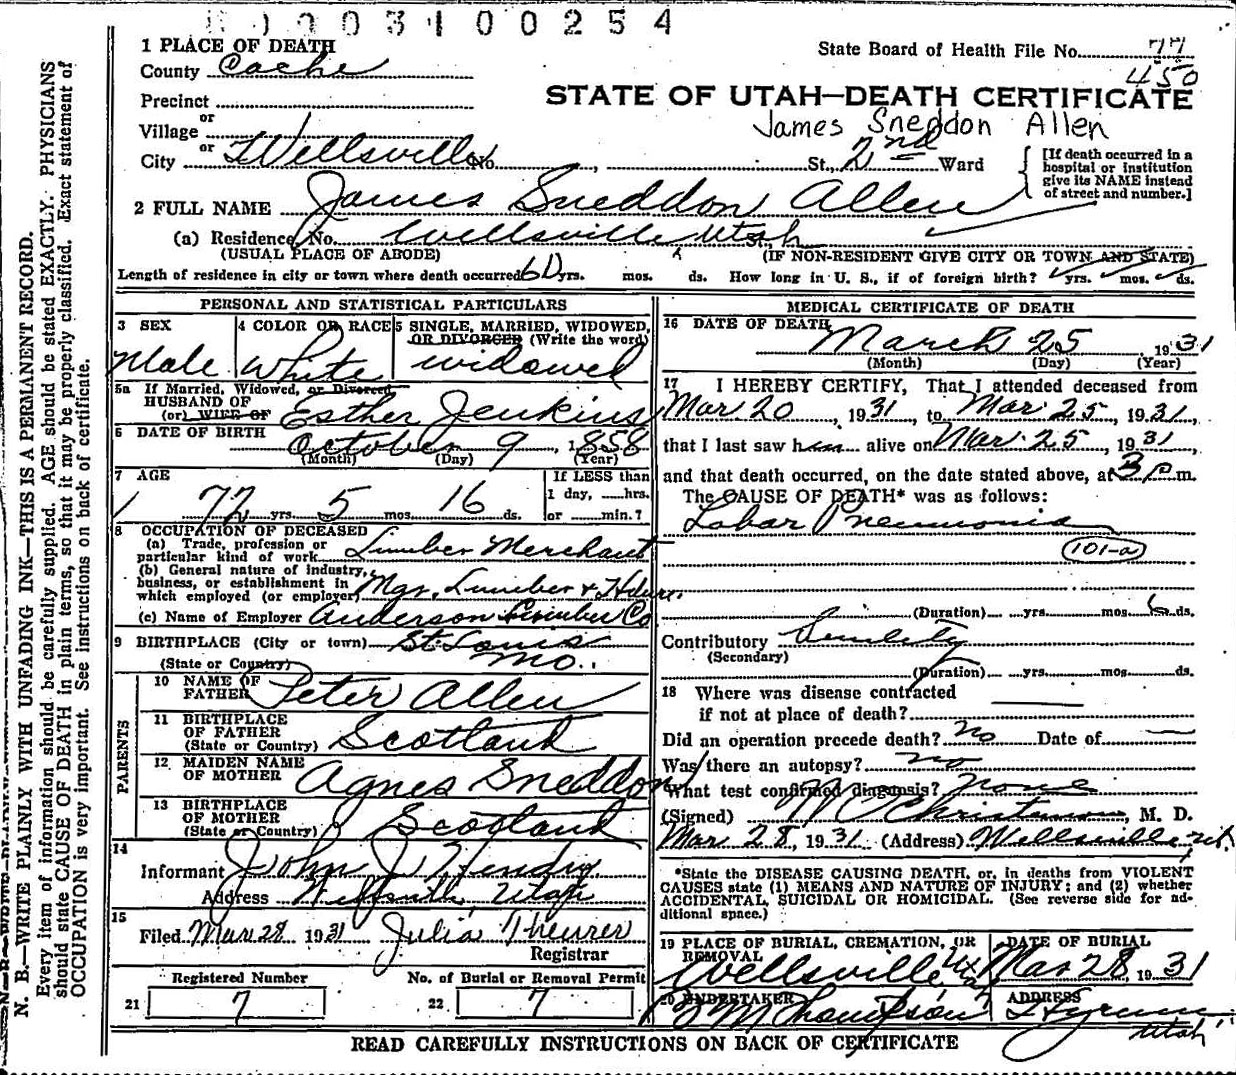 0003100254
1 PLACE OF DEATH
State Board of Health File No. 77
County Cache
450
Precinct
STATE OF UTAH—DEATH CERTIFICATE
or
Village
James Sneddon Allen
or
City Wellsville No. , St., 2nd Ward
[If death occurred in a hospital or institution give its NAME instead of street and number.]
2 FULL NAME James Sneddon Allen
(a) Residence, No. Wellsville Utah St.
(USUAL PLACE OF ABODE) (IF NON-RESIDENT GIVE CITY OR TOWN AND STATE)
Length of residence in city or town where death occurred 60 yrs. mos. ds. How long in U. S., if of foreign birth? yrs. mos. ds.
PERSONAL AND STATISTICAL PARTICULARS
3 SEX 4 COLOR OR RACE 5 SINGLE, MARRIED, WIDOWED, OR DIVORCED (Write the word)
Male White widowed
5a If Married, Widowed, or Divorced
HUSBAND OF
(or) WIFE OF Esther Jenkins
6 DATE OF BIRTH October 9, 1858
(Month) (Day) (Year)
7 AGE
If LESS than
1 day, hrs.
72 yrs. 5 mos. 16 ds. or min.?
8 OCCUPATION OF DECEASED
(a) Trade, profession or
particular kind of work Lumber Merchant
(b) General nature of industry,
business, or establishment in
which employed (or employer) Mgr. Lumber & Hdwr.
(c) Name of Employer Anderson Lumber Co
9 BIRTHPLACE (City or town) St. Louis
(State or Country) Mo.
PARENTS
10 NAME OF
FATHER Peter Allen
11 BIRTHPLACE
OF FATHER
(State or Country) Scotland
12 MAIDEN NAME
OF MOTHER Agnes Sneddon
13 BIRTHPLACE
OF MOTHER
(State or Country) Scotland
14
Informant John J. Hendry
Address Utah
15
Filed Mar 28 1931 Julia Theurer
Registrar
Registered Number No. of Burial or Removal Permit
21 7 22 7
MEDICAL CERTIFICATE OF DEATH
16 DATE OF DEATH
March 25 1931
(Month) (Day) (Year)
17 I HEREBY CERTIFY, That I attended deceased from
Mar 20, 1931, to Mar 25, 1931,
that I last saw him alive on Mar 25, 1931
and that death occurred, on the date stated above, at 3 p.m.
The CAUSE OF DEATH* was as follows:
Lobar Pneumonia
101-a
(Duration) yrs. mos. 6 ds.
Contributory Senility
(Secondary)
(Duration) yrs. mos. ds.
18 Where was disease contracted
if not at place of death?
Did an operation precede death? no Date of —
Was there an autopsy? no
What test confirmed diagnosis? none
(Signed) Christensen, M. D.
Mar 28, 1931 (Address) Wellsville, Ut.
*State the DISEASE CAUSING DEATH, or, in deaths from VIOLENT
CAUSES state (1) MEANS AND NATURE OF INJURY; and (2) whether
ACCIDENTAL, SUICIDAL OR HOMICIDAL. (See reverse side for ad-
ditional space.)
19 PLACE OF BURIAL, CREMATION, OR REMOVAL DATE OF BURIAL
Wellsville, Utah Mar 28 1931
20 UNDERTAKER ADDRESS
M Thompson Hyrum
Utah
READ CAREFULLY INSTRUCTIONS ON BACK OF CERTIFICATE
N. B.—WRITE PLAINLY WITH UNFADING INK—THIS IS A PERMANENT RECORD.
Every item of information should be carefully supplied. AGE should be stated EXACTLY. PHYSICIANS
should state CAUSE OF DEATH in plain terms, so that it may be properly classified. Exact statement of
OCCUPATION is very important. See instructions on back of certificate.